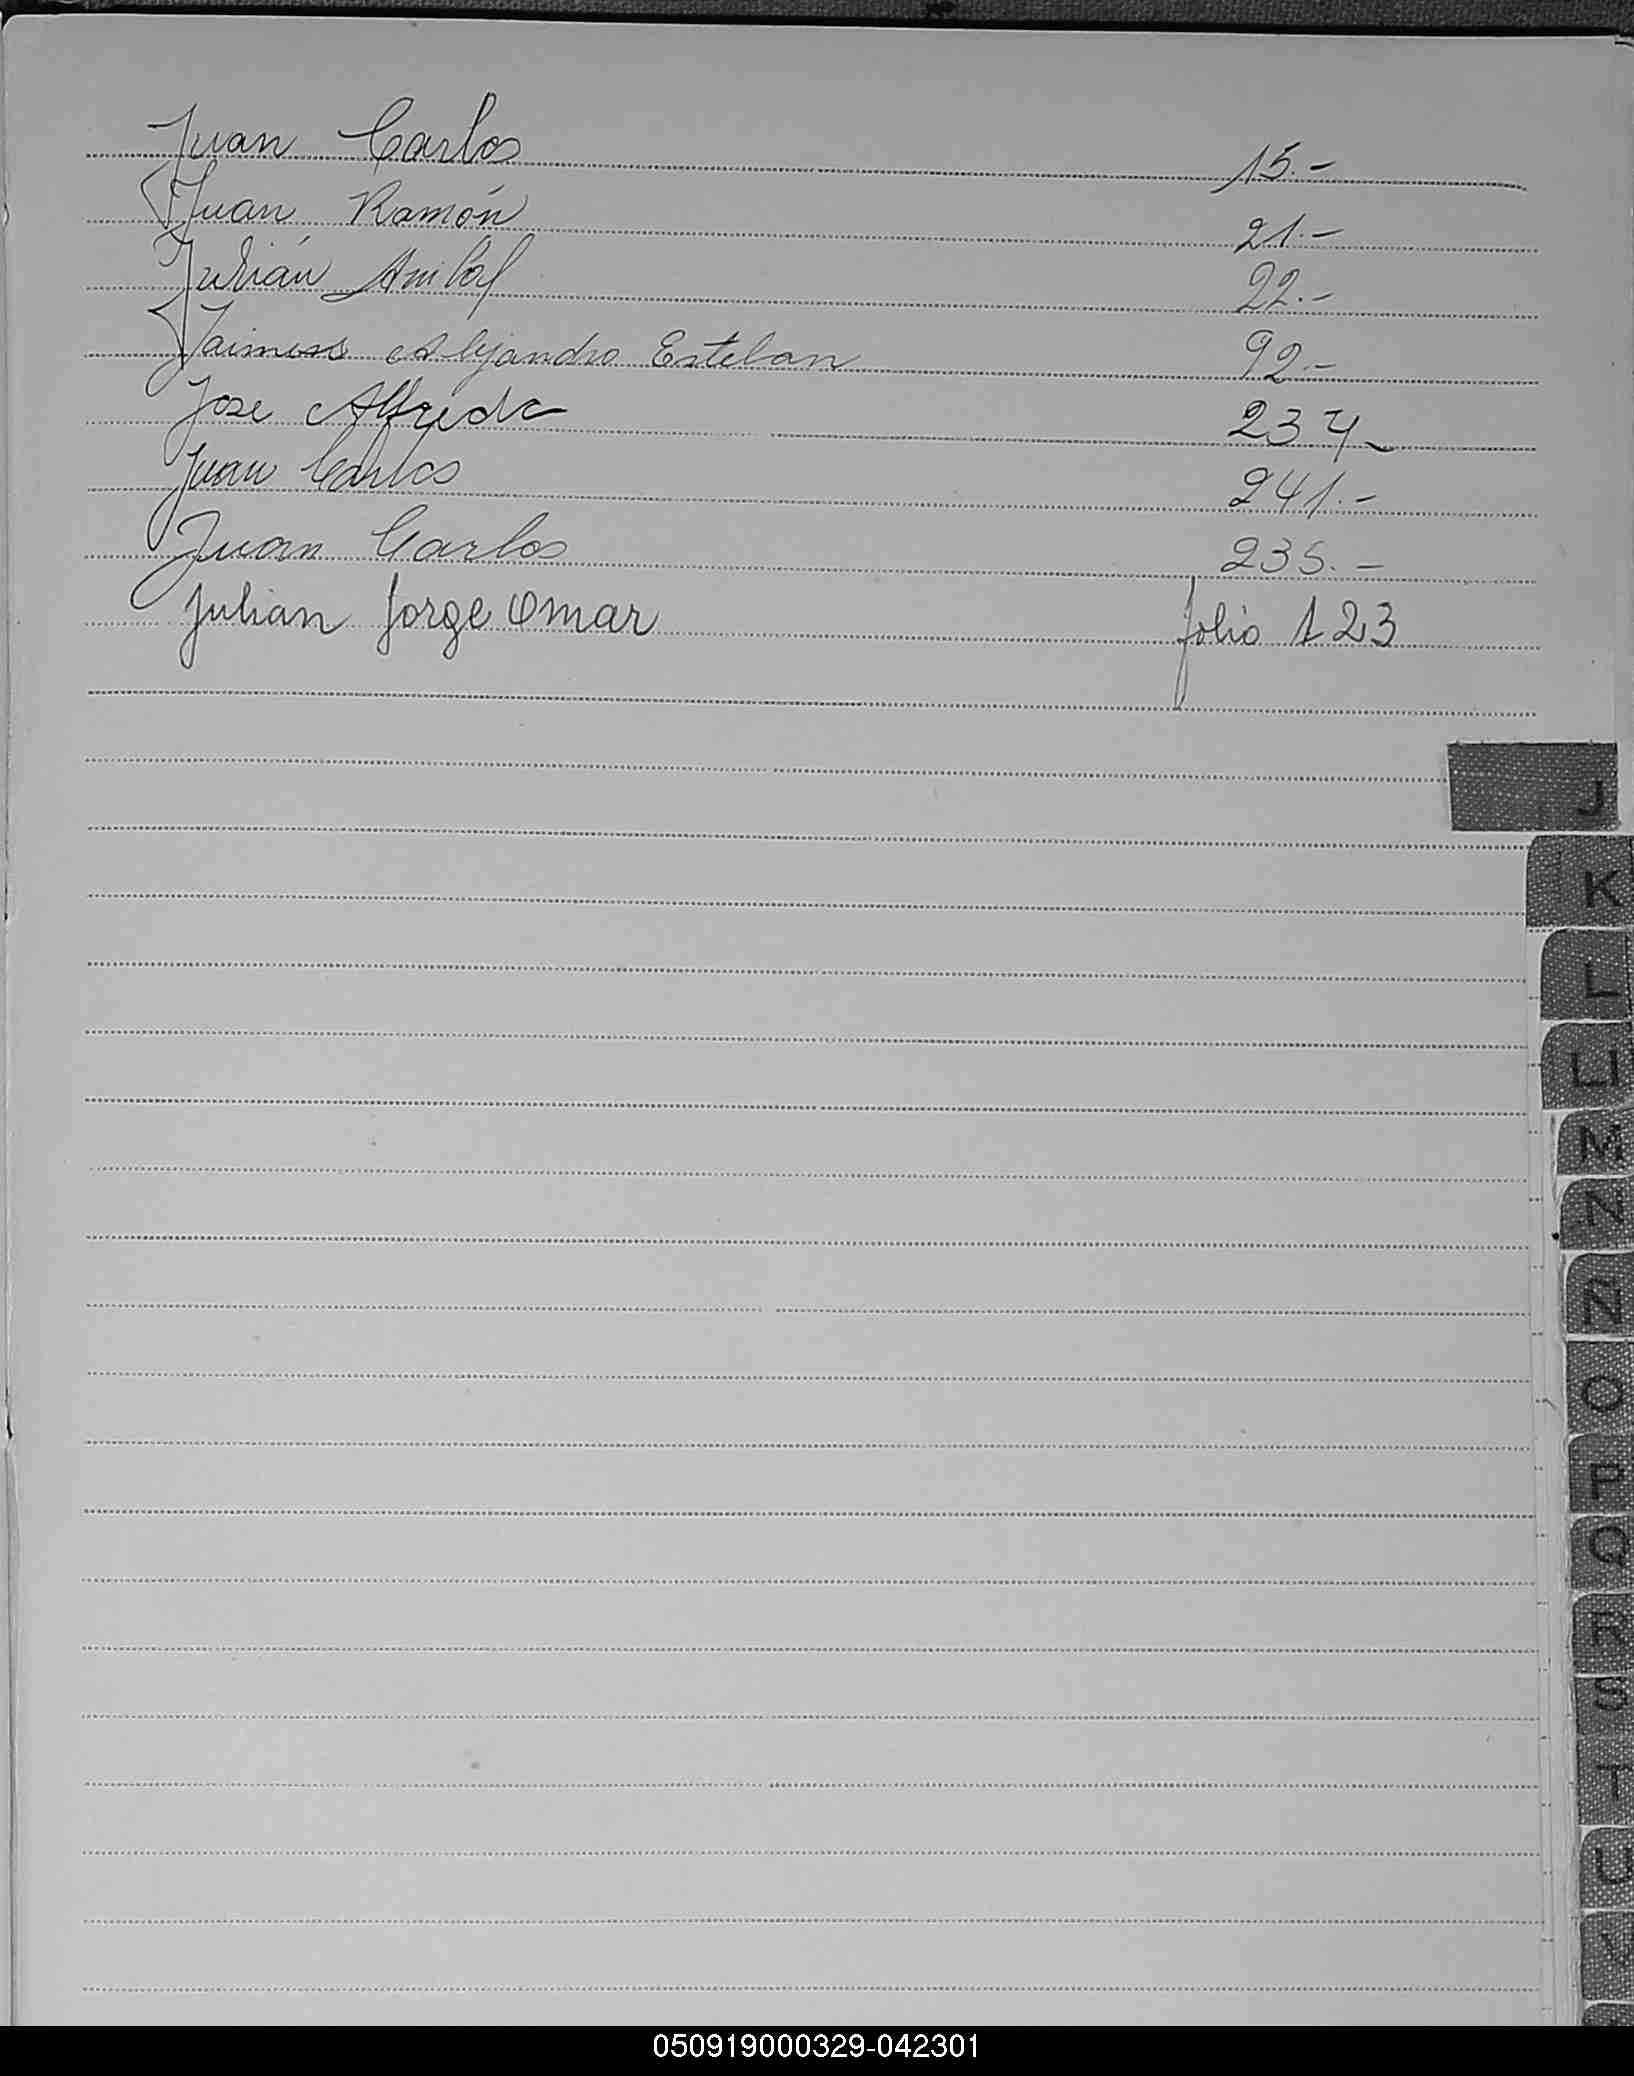 Juan Carlos 15.-
Juan Ramón 21.-
Julián Anibal 22.-
Jaimess Alejandro Esteban 92.-
Jose Alfredo 234
Juan Carlos 241.-
Juan Carlos 235.-
Julian Jorge Omar folio 123
J
K
L
Ll
M
N
Ñ
O
P
Q
R
S
T
U
V
050919000329-042301